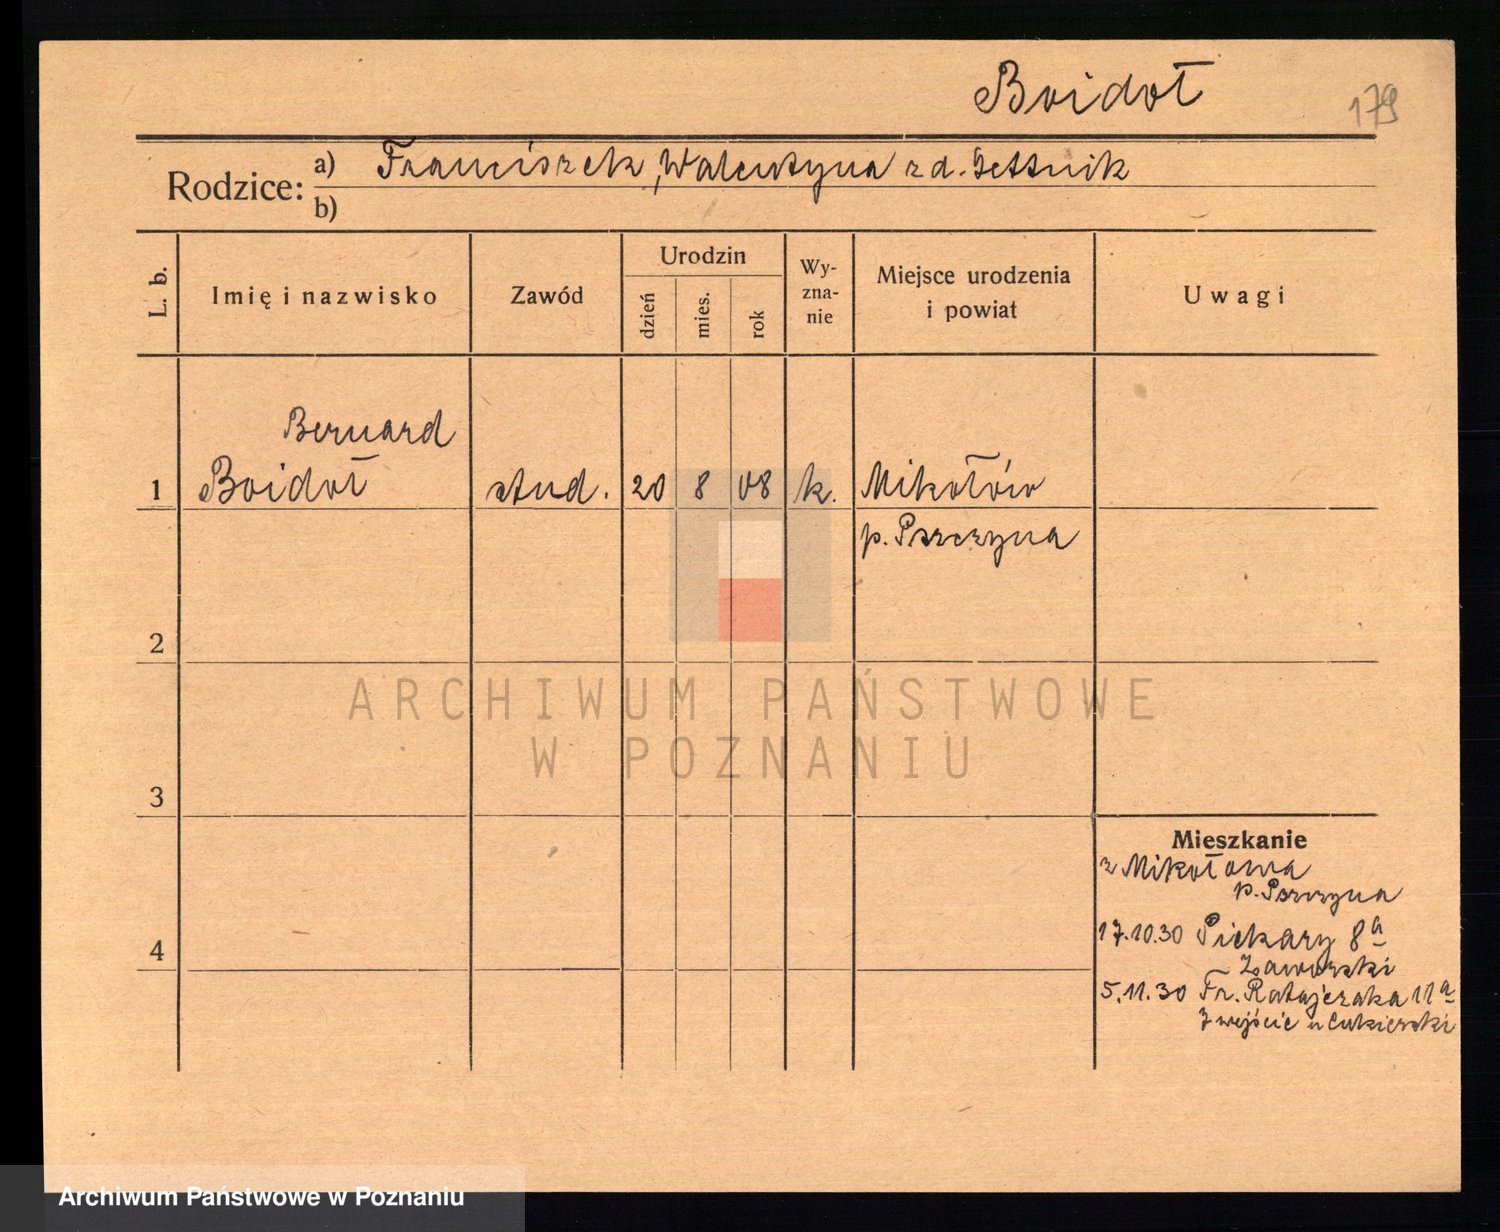 Boidoł
179
Rodzice: a) Franciszek, Walentyna z d.
b)
L. b.
Imię i nazwisko
Zawód
Urodzin
dzień
mies.
rok
Wy-
zna-
nie
Miejsce urodzenia
i powiat
Uwagi
Bernard
1 Boidoł stud. 20 8 08 k. Mikołów
p. Pszczyna
2
3
4
Mieszkanie
z Mikołowa
p. Pszczyna
17.10.30 Piekary 8a
Zaworski
5.11.30 Fr. Ratajczaka 11a
wejście u Cukierski
ARCHIWUM PAŃSTWOWE
W POZNANIU
Archiwum Państwowe w Poznaniu